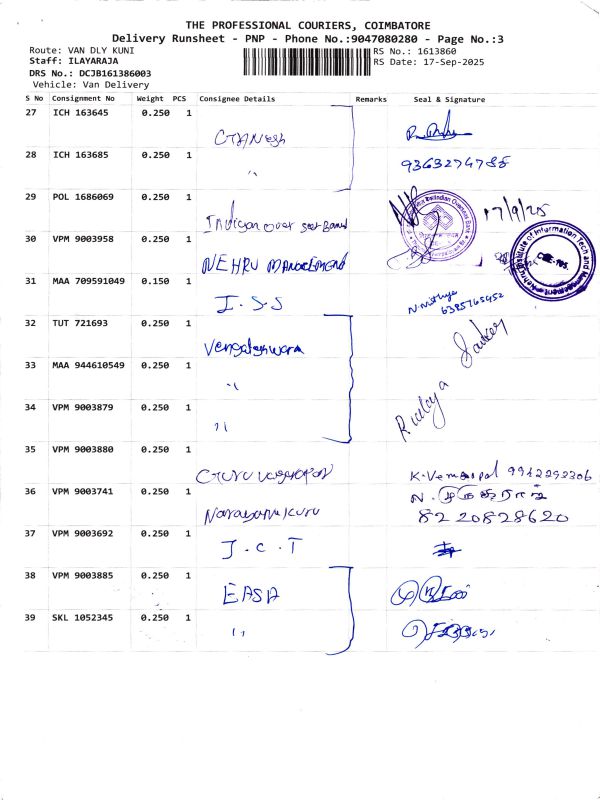 THE PROFESSIONAL COURIERS, COIMBATORE
Delivery Runsheet - PNP - Phone No.:9047080280 - Page No.:3
Route: VAN DLY KUNI
RS No.: 1613860
Staff: ILAYARAJA
RS Date: 17-Sep-2025
DRS No.: DCJB161386003
Vehicle: Van Delivery
S No Consignment No Weight PCS Consignee Details Remarks Seal & Signature
27 ICH 163645 0.250 1
GANesh
28 ICH 163685 0.250 1
" 9363274788
29 POL 1686069 0.250 1
17/9/25
30 VPM 9003958 0.250 1
NEHRU
31 MAA 709591049 0.150 1
I.S.S N.Nithya
6385765452
32 TUT 721693 0.250 1
33 MAA 944610549 0.250 1
"
34 VPM 9003879 0.250 1
"
35 VPM 9003880 0.250 1
36 VPM 9003741 0.250 1
8220828620
37 VPM 9003692 0.250 1
J.C.T
38 VPM 9003885 0.250 1
EASA
39 SKL 1052345 0.250 1
"